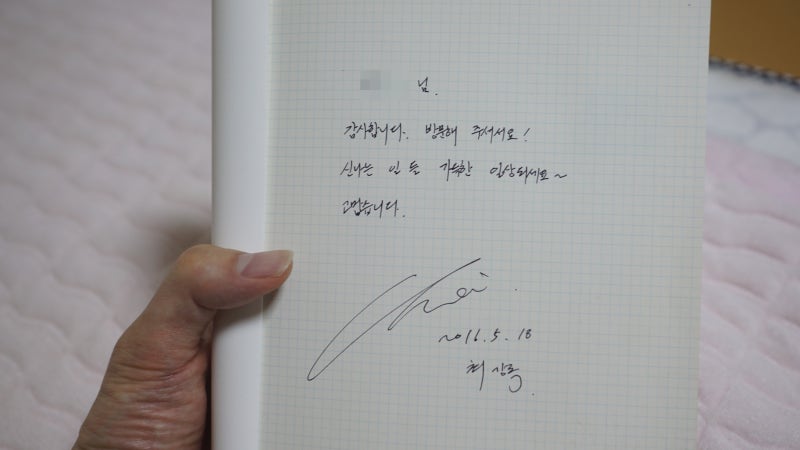 님.
감사합니다. 방문해 주셔서요!
신나는 일 들 가득한 일상되세요~
고맙습니다.
Choi
2016. 5. 18
최